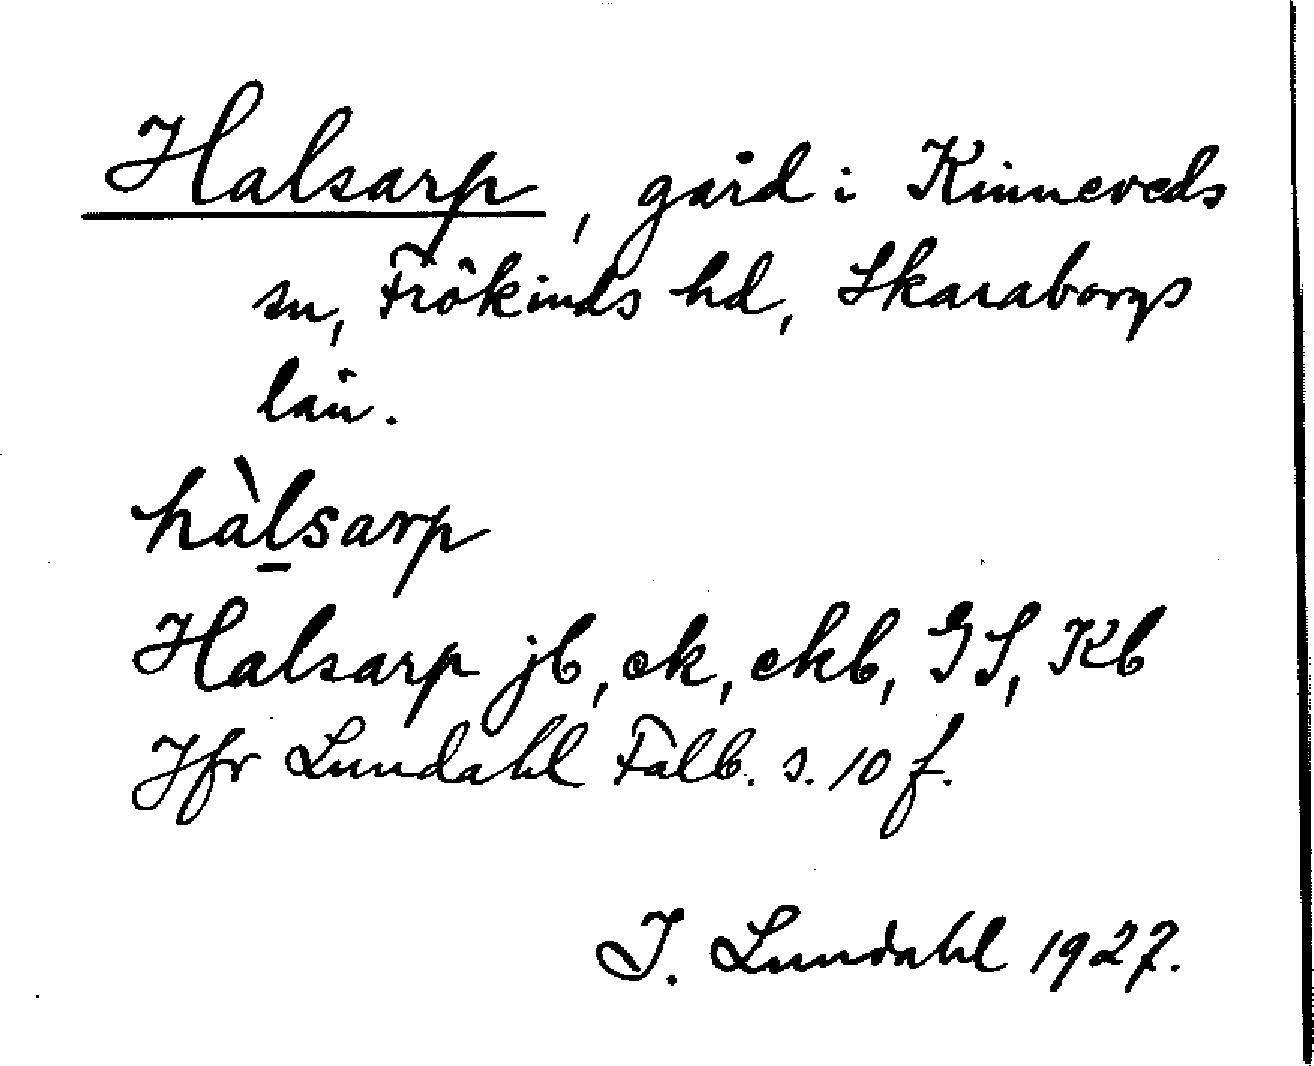 Halsarp, gård i Kinneveds
sn, Frökinds hd, Skaraborgs
län.
hàl̠sarp
Halsarp jb, ek, ekb, GS, Kb
Jfr Lundahl Falb. s. 10 f.
I. Lundahl 1927.